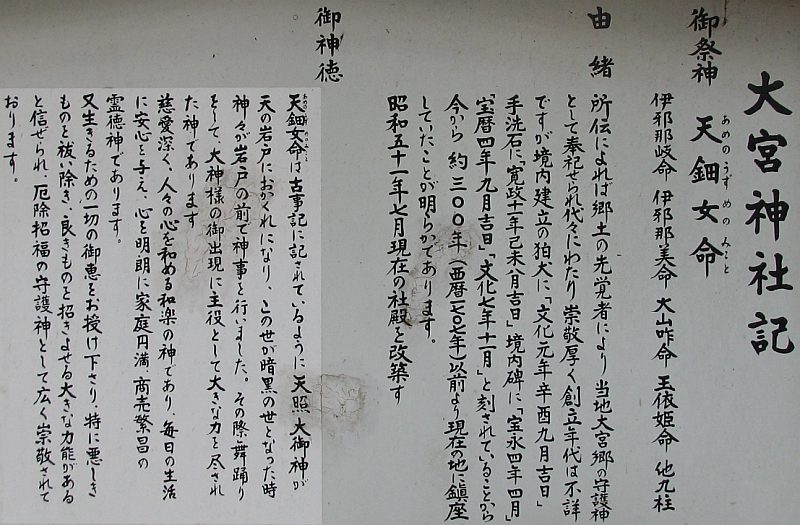 大宮神社記
御祭神
天鈿女命
あめのうずめのみこと
伊邪那岐命 伊邪那美命 大山咋命 玉依姫命 他九柱
由緒
所伝によれば郷土の先覚者により 当地大宮郷の守護神
として奉祀せられ代々にわたり 崇敬厚く創立年代は不詳
ですが境内建立の狛犬に「文化元年辛酉九月吉日」
手洗石に、「寛政十一年己未八月吉日」境内碑に「宝永四年四月」
「宝暦四年九月吉日」「文化七年十一月」と刻されていることから
今から 約三〇〇年(西暦一七〇七年)以前より現在の地に鎮座
していたことが明らかであります。
昭和五十一年七月現在の社殿を改築す
御神徳
天鈿女命は古事記に記されているように 天照大御神が
あめのうずめのみこと
天の岩戸におかくれになり、この世が暗黒の世となった時
神々が岩戸の前で神事を行いました。その際舞踊り
をして、大神様の御出現に主役として大きな力を尽され
た神であります
慈愛深く、人々の心を和める和楽の神であり、毎日の生活
に安心を与え、心を明朗に家庭円満 商売繁昌の
霊徳神であります。
又生きるための一切の御恵をお授け下さり、特に悪しき
ものを祓い除き、良きものを招きよせる大きな力能がある
と信ぜられ、厄除招福の守護神として広く崇敬されて
おります。